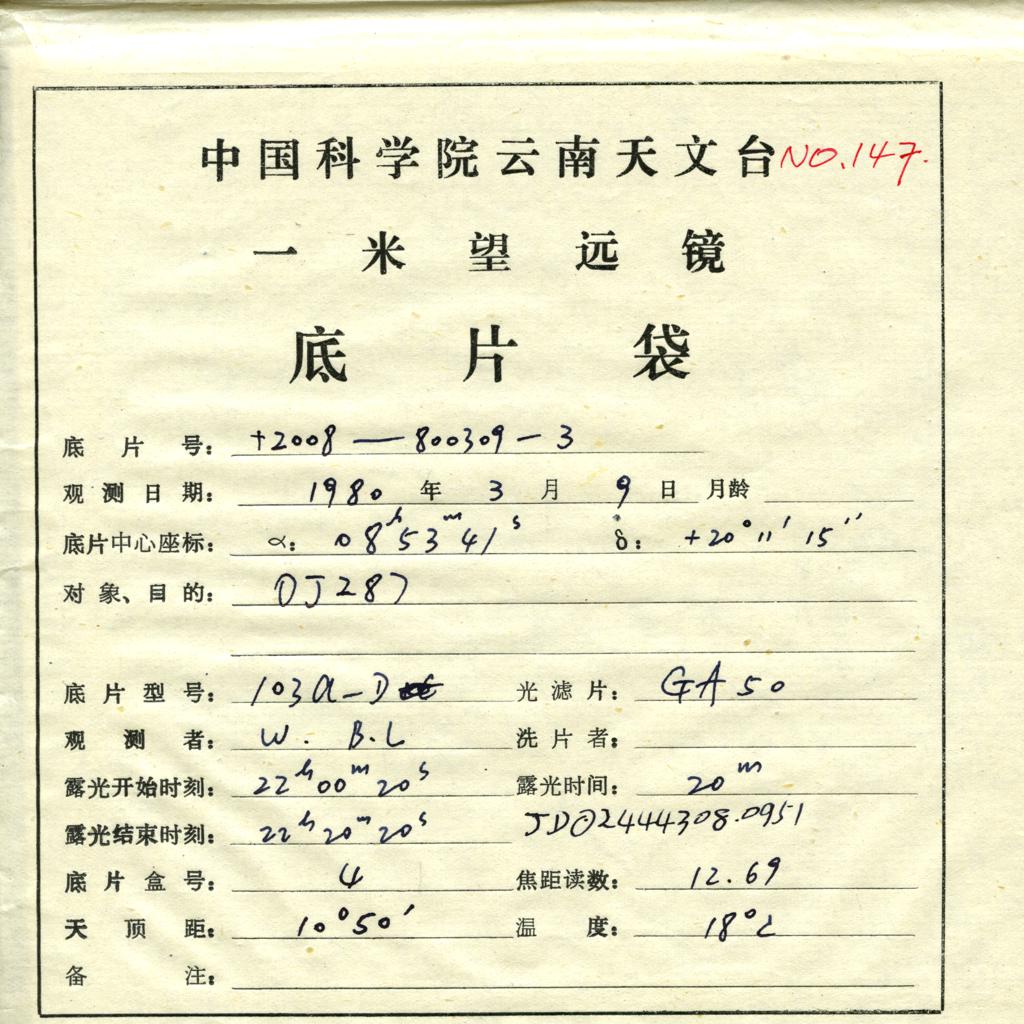 中国科学院云南天文台 NO.147.
一米望远镜
底片袋
底片号：+2008—800309-3
观测日期：1980年3月9日 月龄
底片中心座标：α：08h53m41s δ：+20°11′15″
对象、目的：OJ287
底片型号：103a-D 光滤片：GA50
观测者：W. B.L 洗片者：
露光开始时刻：22h00m20s 露光时间：20m
露光结束时刻：22h20m20s JD⊙2444308.0951
底片盒号：4 焦距读数：12.69
天顶距：10°50′ 温度：18°C
备注：